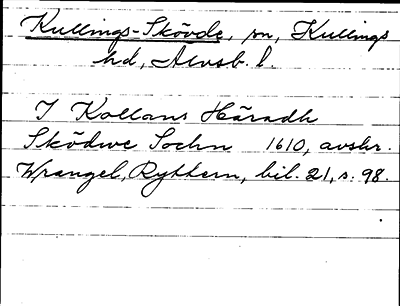 Kullings-Skövde, sn, Kullings
hd, Älvsb. l.
I Kollans Häradh
Sködwe Sochn 1610, avskr.
Wrangel, Ryttern, bil. 21, s. 98.